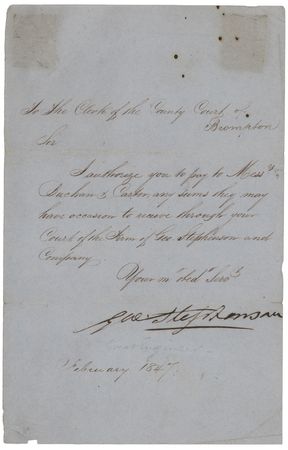 To The Clerk of the County Court of
Brompton
Sir
I authorize you to pay to Mess.rs
Buchan & Caxton, any sums they may
have occasion to receive through your
Court of the Firm of Geo Stephenson and
Company
Your m obed Serv.t
Geo Stephenson
February 1847.